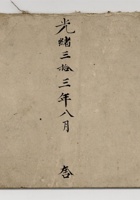 光緒三拾三年八月